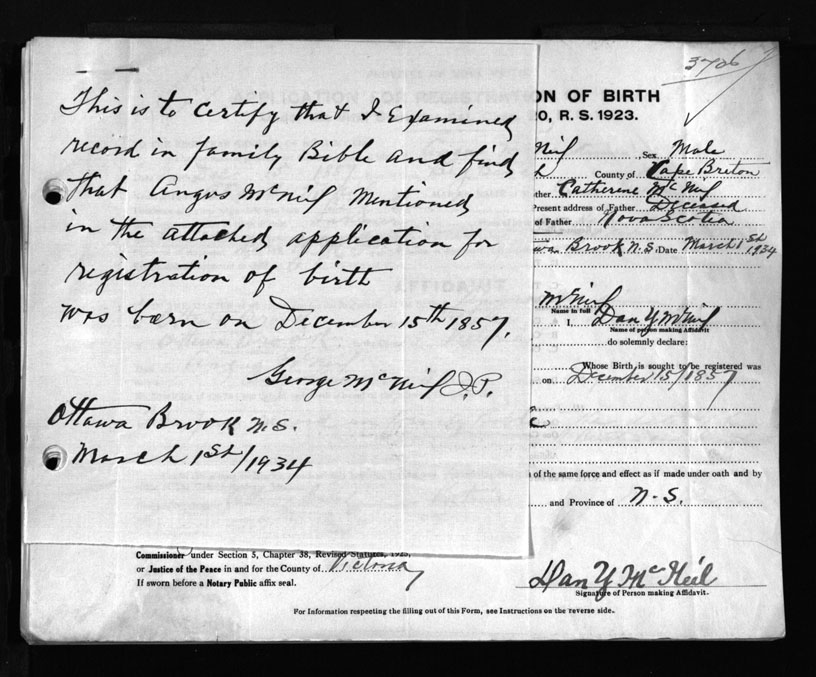 This is to certify that I Examined
record in family Bible and find
that Angus McNeil Mentioned
in the attached application for
registration of birth
was born on December 15th 1857.
George McNeil J.P.
Ottawa Brook N.S.
March 1st/1934
3726
ON OF BIRTH
R. S. 1923.
Neil Sex Male
County of Cape Breton
ther Catherine McNeil
Present address of Father Deceased
of Father Nova Scotia
wa Brook N.S. Date March 1st 1934
McNeil
Name in full
I, Dan Y McNeil
Name of person making Affidavit
do solemnly declare:
Whose Birth is sought to be registered was
on December 15/1857
of the same force and effect as if made under oath and by
and Province of N.S.
Commissioner under Section 5, Chapter 38, Revised Statutes, 1923,
or Justice of the Peace in and for the County of Victoria
If sworn before a Notary Public affix seal.
Dan Y McNeil
Signature of Person making Affidavit.
For Information respecting the filling out of this Form, see Instructions on the reverse side.